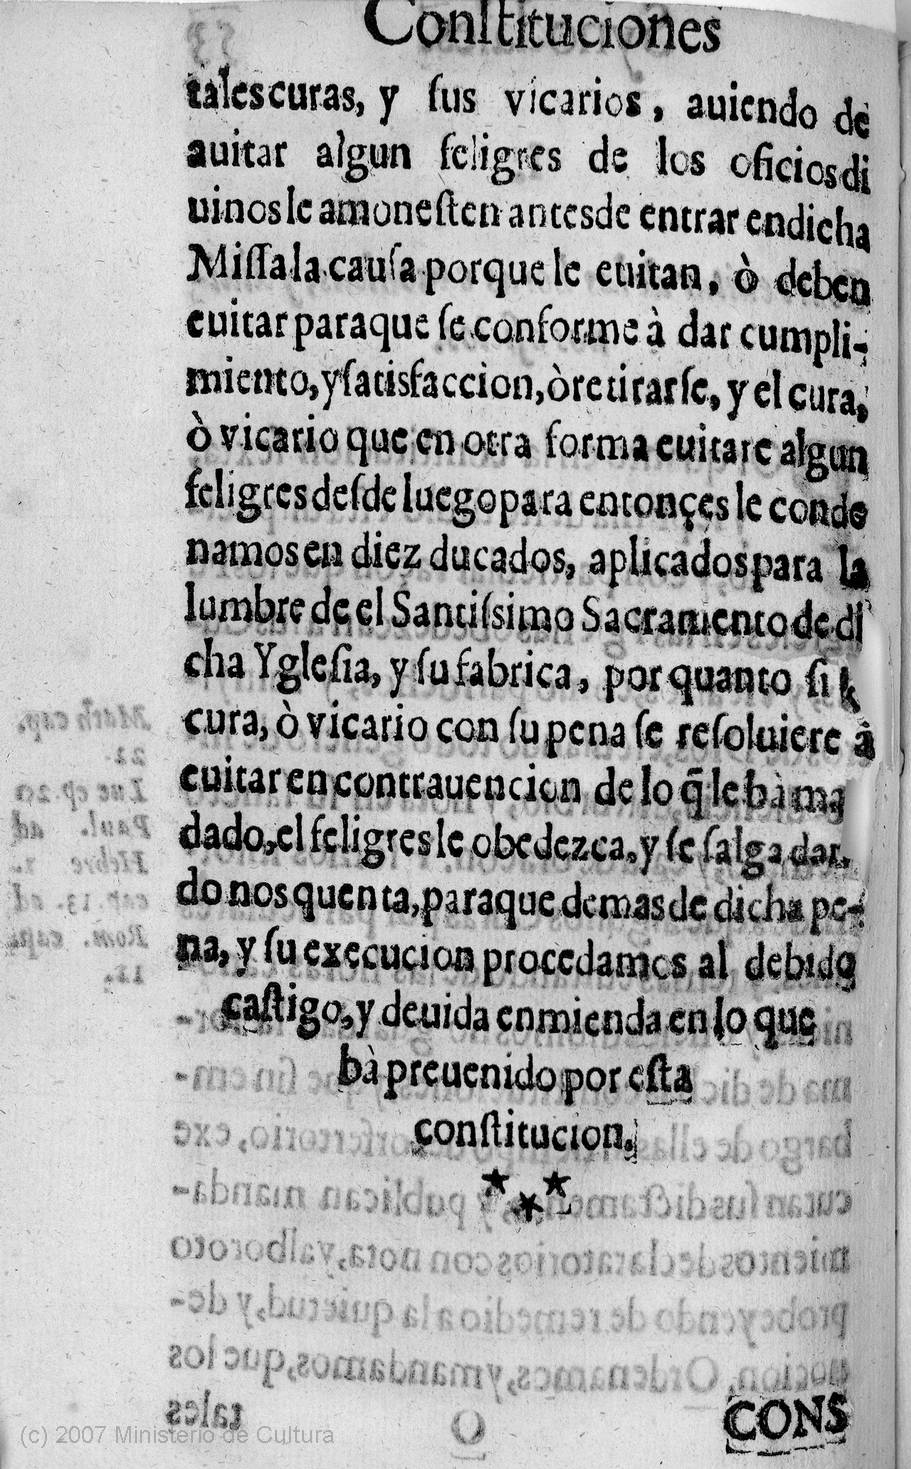 Conſtituciones
tales curas, y ſus vicarios, auiendo de
auitar algun feligres de los oficios di
uinos le amoneſten antes de entrar en dicha
Miſſa la cauſa porque le euitan, ò deben
euitar para que ſe conforme à dar cumpli-
miento, y ſatisfaccion, ò retirarſe, y el cura,
ò vicario que en otra forma euitare algun
feligres deſde luego para entonçes le conde
namos en diez ducados, aplicados para la
lumbre de el Santiſsimo Sacramento de di
cha Ygleſia, y ſu fabrica, por quanto ſi
cura, ò vicario con ſu pena ſe reſoluiere à
euitar en contrauencion de lo q̃ le bà mã
dado, el feligres le obedezca, y ſe ſalga dan
do nos quenta, para que demas de dicha pe-
na, y ſu execucion procedamos al debido
caſtigo, y deuida enmienda en lo que
bà preuenido por eſta
conſtitucion.
CONS
(c) 2007 Ministerio de Cultura